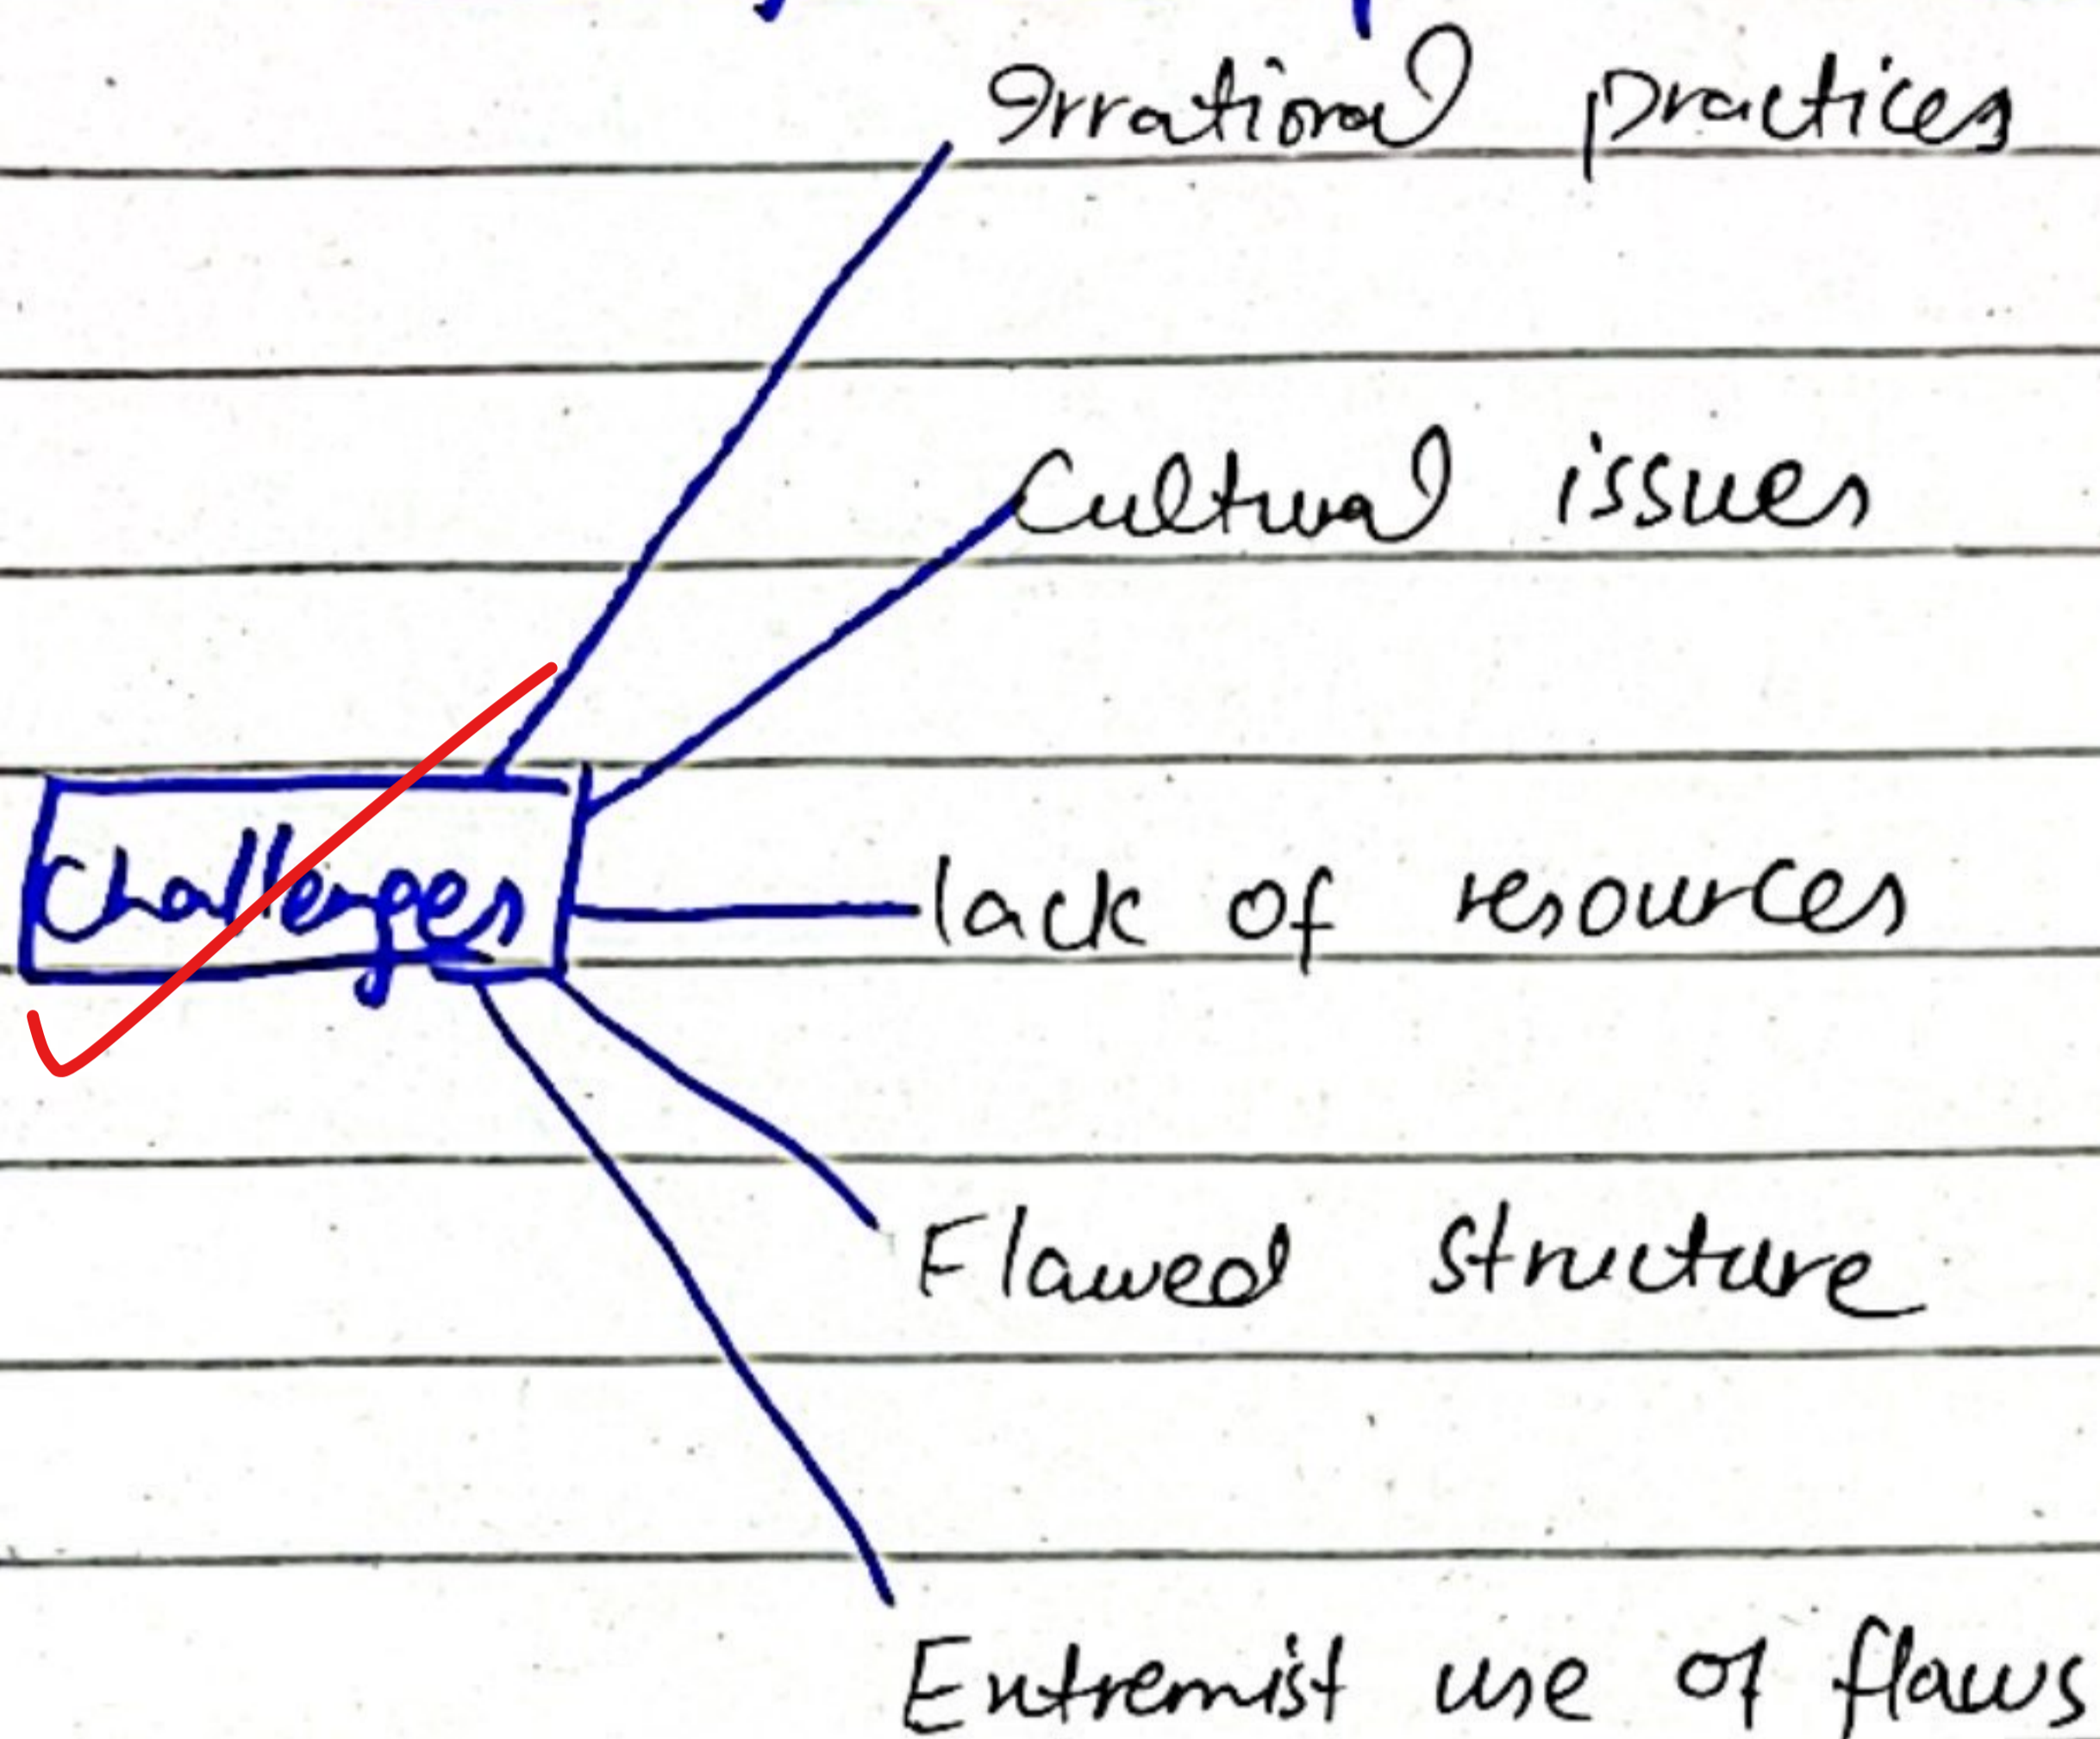 Irrational practices
Cultural issues
Challenges
lack of resources
Flawed structure
Extremist use of flaws